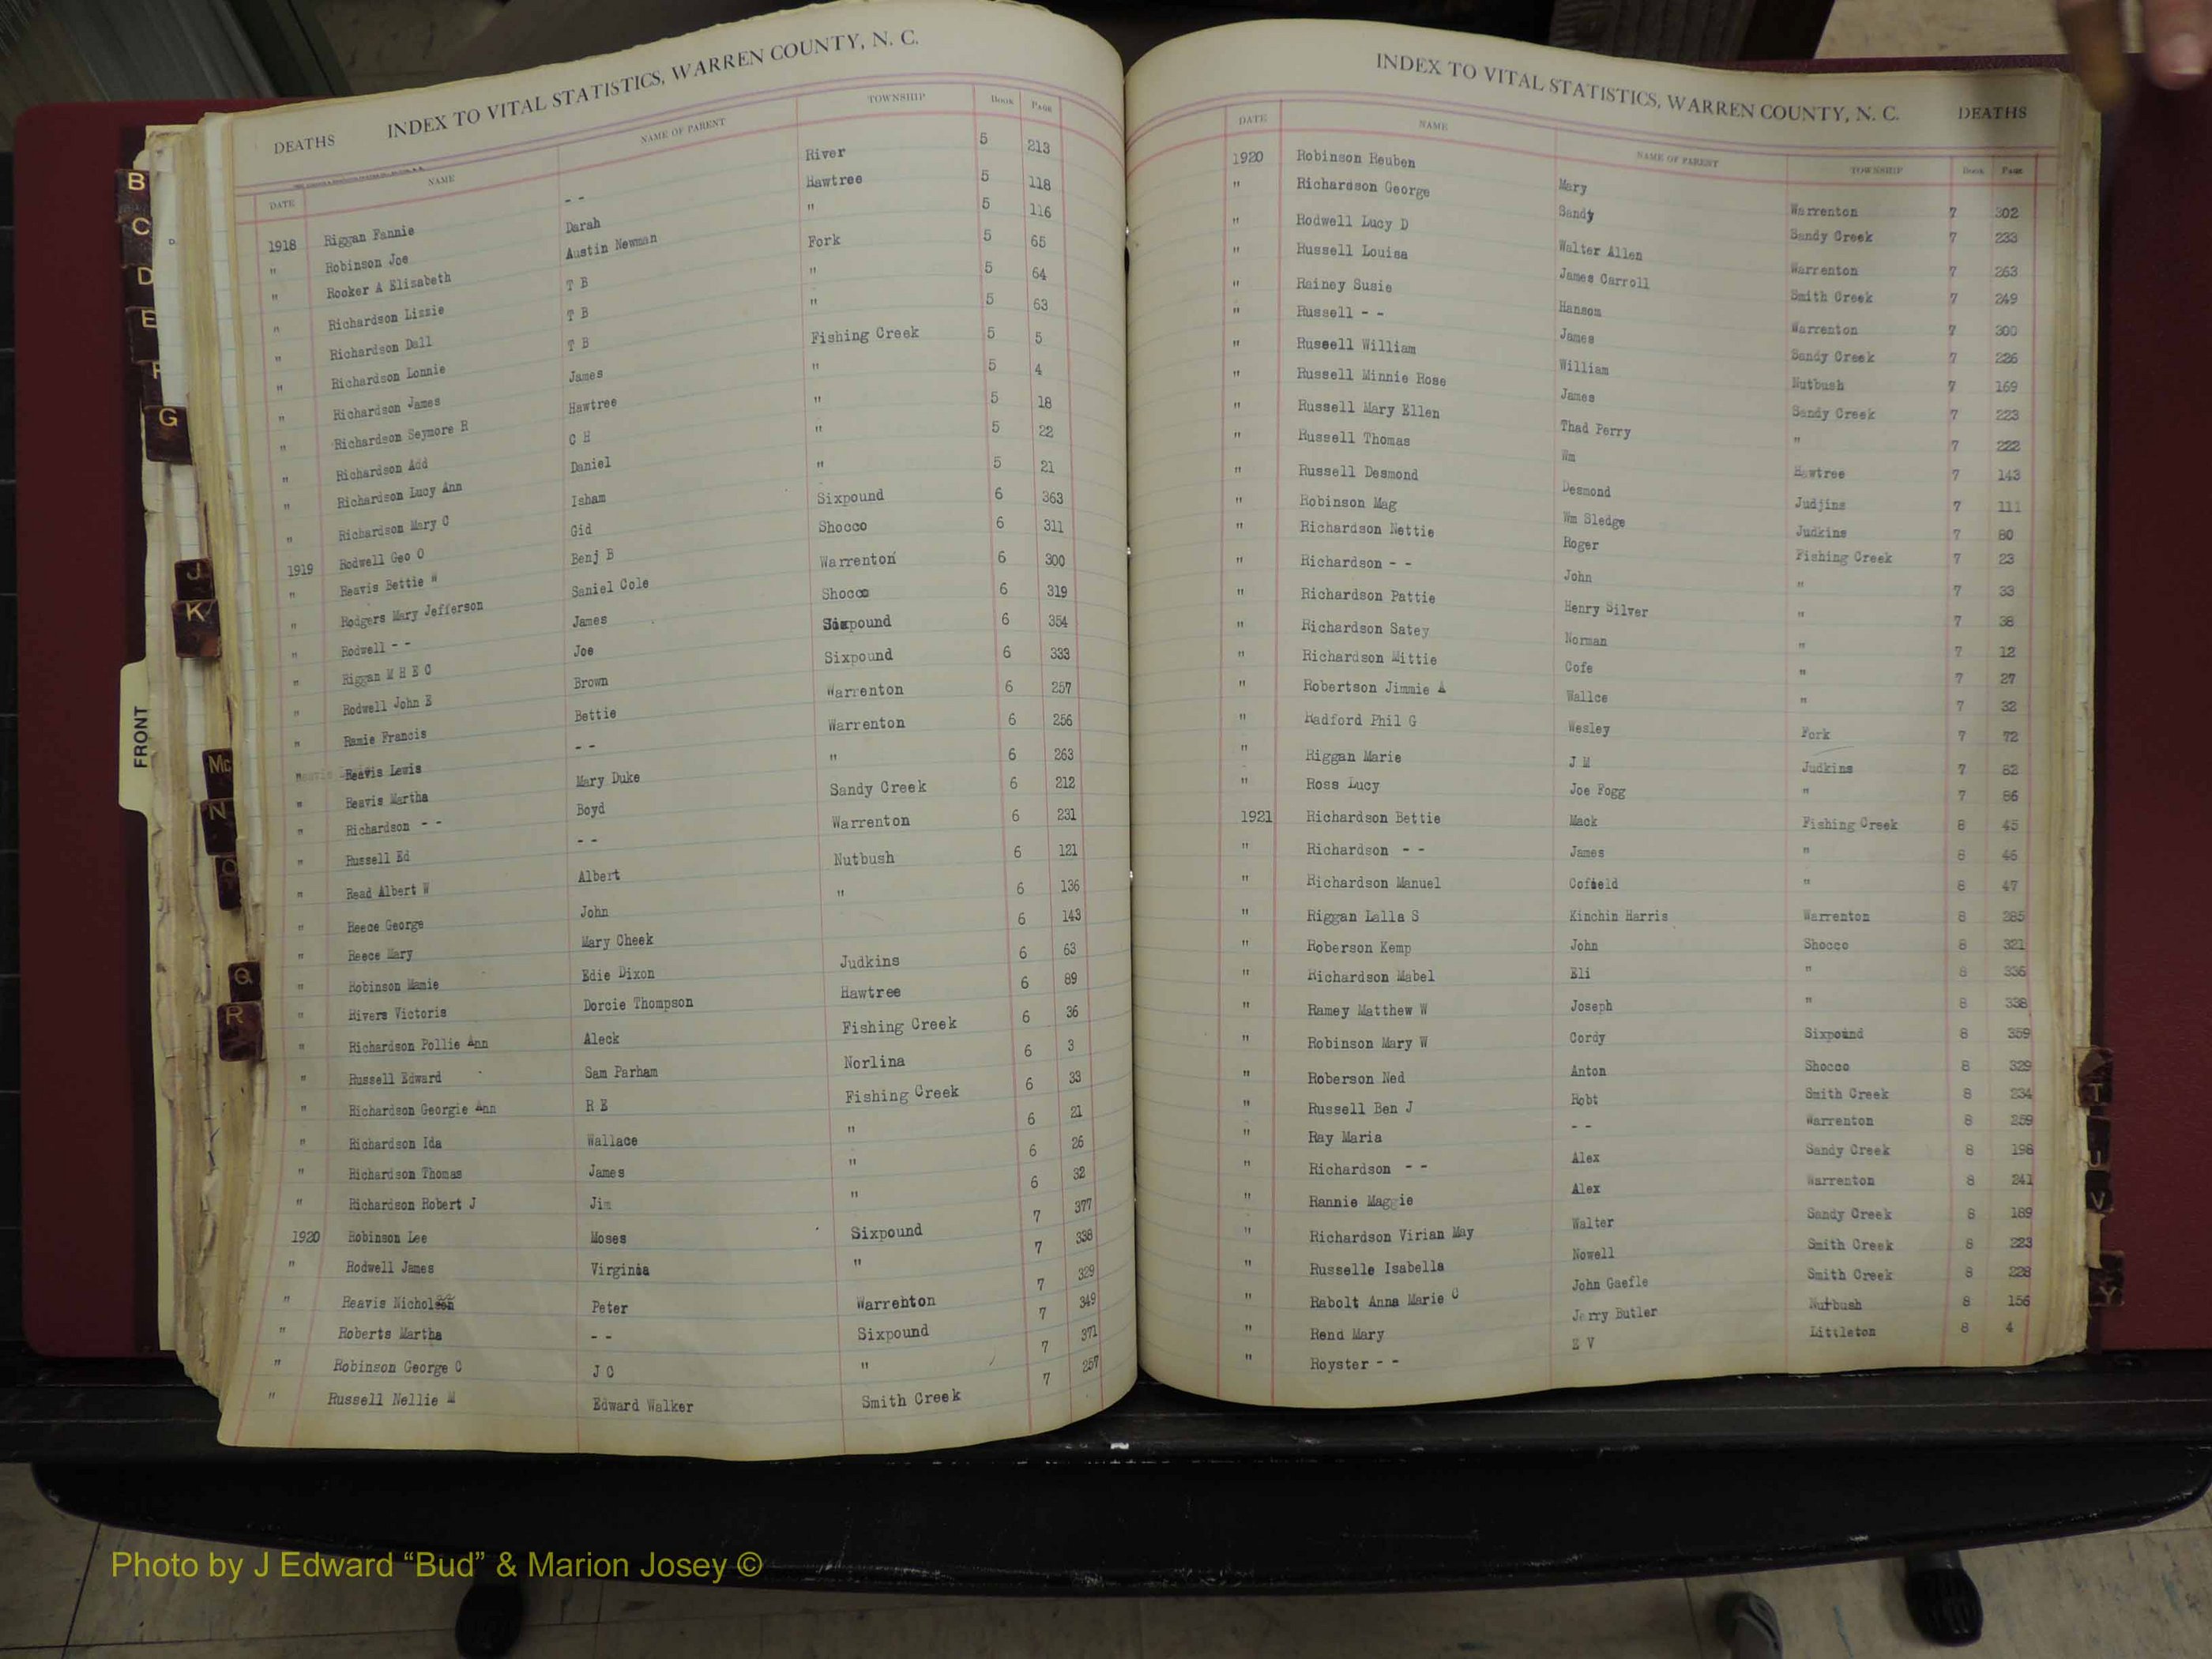 DEATHS INDEX TO VITAL STATISTICS, WARREN COUNTY, N. C.
DATE NAME NAME OF PARENT TOWNSHIP Book Page
1918 Riggan Fannie - - River 5 213
" Robinson Joe Darah Hawtree 5 118
" Rooker A Elizabeth Austin Newman " 5 116
" Richardson Lizzie T B Fork 5 65
" Richardson Dall T B " 5 64
" Richardson Lonnie T B " 5 63
" Richardson James James Fishing Creek 5 5
" Richardson Seymore R Hawtree " 5 4
" Richardson Add C H " 5 18
" Richardson Lucy Ann Daniel " 5 22
" Richardson Mary C Isham " 5 21
1919 Rodwell Geo O Gid Sixpound 6 363
" Reavis Bettie W Benj B Shocco 6 311
" Rodgers Mary Jefferson Saniel Cole Warrenton 6 300
" Rodwell - - James Shocco 6 319
" Riggan M H E C Joe Sixpound 6 354
" Rodwell John E Brown Sixpound 6 333
" Ramie Francis Bettie Warrenton 6 257
" Reavis Lewis - - Warrenton 6 256
" Reavis Martha Mary Duke " 6 263
" Richardson - - Boyd Sandy Creek 6 212
" Russell Ed - - Warrenton 6 231
" Read Albert W Albert Nutbush 6 121
" Reece George John " 6 136
" Reece Mary Mary Cheek 6 143
" Robinson Mamie Edie Dixon Judkins 6 63
" Rivers Victoria Dorcie Thompson Hawtree 6 89
" Richardson Pollie Ann Aleck Fishing Creek 6 36
" Russell Edward Sam Parham Norlina 6 3
" Richardson Georgie Ann R E Fishing Creek 6 33
" Richardson Ida Wallace " 6 21
" Richardson Thomas James " 6 26
" Richardson Robert J Jim " 6 32
1920 Robinson Lee Moses Sixpound 7 377
" Rodwell James Virginia " 7 338
" Reavis Nicholson Peter Warrenton 7 329
" Roberts Martha - - Sixpound 7 349
" Robinson George C J C " 7 371
" Russell Nellie M Edward Walker Smith Creek 7 257
INDEX TO VITAL STATISTICS, WARREN COUNTY, N. C. DEATHS
DATE NAME NAME OF PARENT TOWNSHIP Book Page
1920 Robinson Reuben Mary Warrenton 7 302
" Richardson George Sandy Sandy Creek 7 233
" Rodwell Lucy D Walter Allen Warrenton 7 263
" Russell Louisa James Carroll Smith Creek 7 249
" Rainey Susie Hansom Warrenton 7 300
" Russell - - James Sandy Creek 7 226
" Russell William William Nutbush 7 169
" Russell Minnie Rose James Sandy Creek 7 223
" Russell Mary Ellen Thad Perry " 7 222
" Russell Thomas Wm Hawtree 7 143
" Russell Desmond Desmond Judjins 7 111
" Robinson Mag Wm Sledge Judkins 7 80
" Richardson Nettie Roger Fishing Creek 7 23
" Richardson - - John " 7 33
" Richardson Pattie Henry Silver " 7 38
" Richardson Satey Norman " 7 12
" Richardson Mittie Cofe " 7 27
" Robertson Jimmie A Wallce " 7 32
" Radford Phil G Wesley Fork 7 72
" Riggan Marie J M Judkins 7 82
" Ross Lucy Joe Fogg " 7 86
1921 Richardson Bettie Mack Fishing Creek 8 45
" Richardson - - James " 8 46
" Richardson Manuel Cofield " 8 47
" Riggan Lalla S Kinchin Harris Warrenton 8 285
" Roberson Kemp John Shocco 8 321
" Richardson Mabel Eli " 8 336
" Ramey Matthew W Joseph " 8 338
" Robinson Mary W Cordy Sixpound 8 359
" Roberson Ned Anton Shocco 8 329
" Russell Ben J Robt Smith Creek 8 234
" Ray Maria - - Warrenton 8 259
" Richardson - - Alex Sandy Creek 8 198
" Rannie Maggie Alex Warrenton 8 241
" Richardson Virian May Walter Sandy Creek 8 189
" Russelle Isabella Nowell Smith Creek 8 223
" Rabolt Anna Marie C John Gaefle Smith Creek 8 228
" Rend Mary Jerry Butler Nutbush 8 156
" Royster - - E V Littleton 8 4
B
C
D
E
F
G
J
K
FRONT
Mc
N
O
Q
R
T
U
V
Y
Photo by J Edward “Bud” & Marion Josey ©